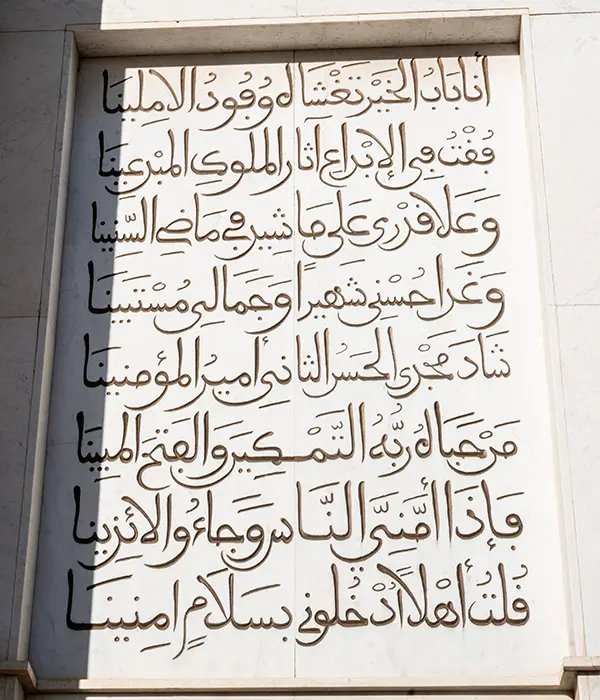 أنا باب الخير تغشاه وفود الاملينا
فقت في الإبداع آثار الملوك المبدعينا
وعلا قدري على ما شيد في ماضي السنينا
وغدا حسني شهيرا وجمالي مستبينا
شاد مجدي الحسن الثاني أمير المؤمنينا
من حباه ربُّهُ التَّمْكِينَ والفتحَ المبينا
فإذا أمَّنِيَ النَّاس وجاءُوا لائذينا
قلتُ أهْلاً أدْخلوني بسلامٍ امنينا